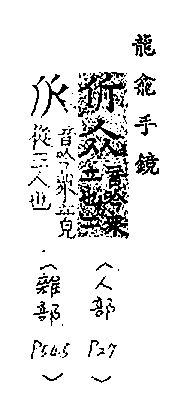 龍龕手鏡
音吟衆立也三
(人部 P27)
㐺 音吟衆立皃
從三人也
(雜部 P545)